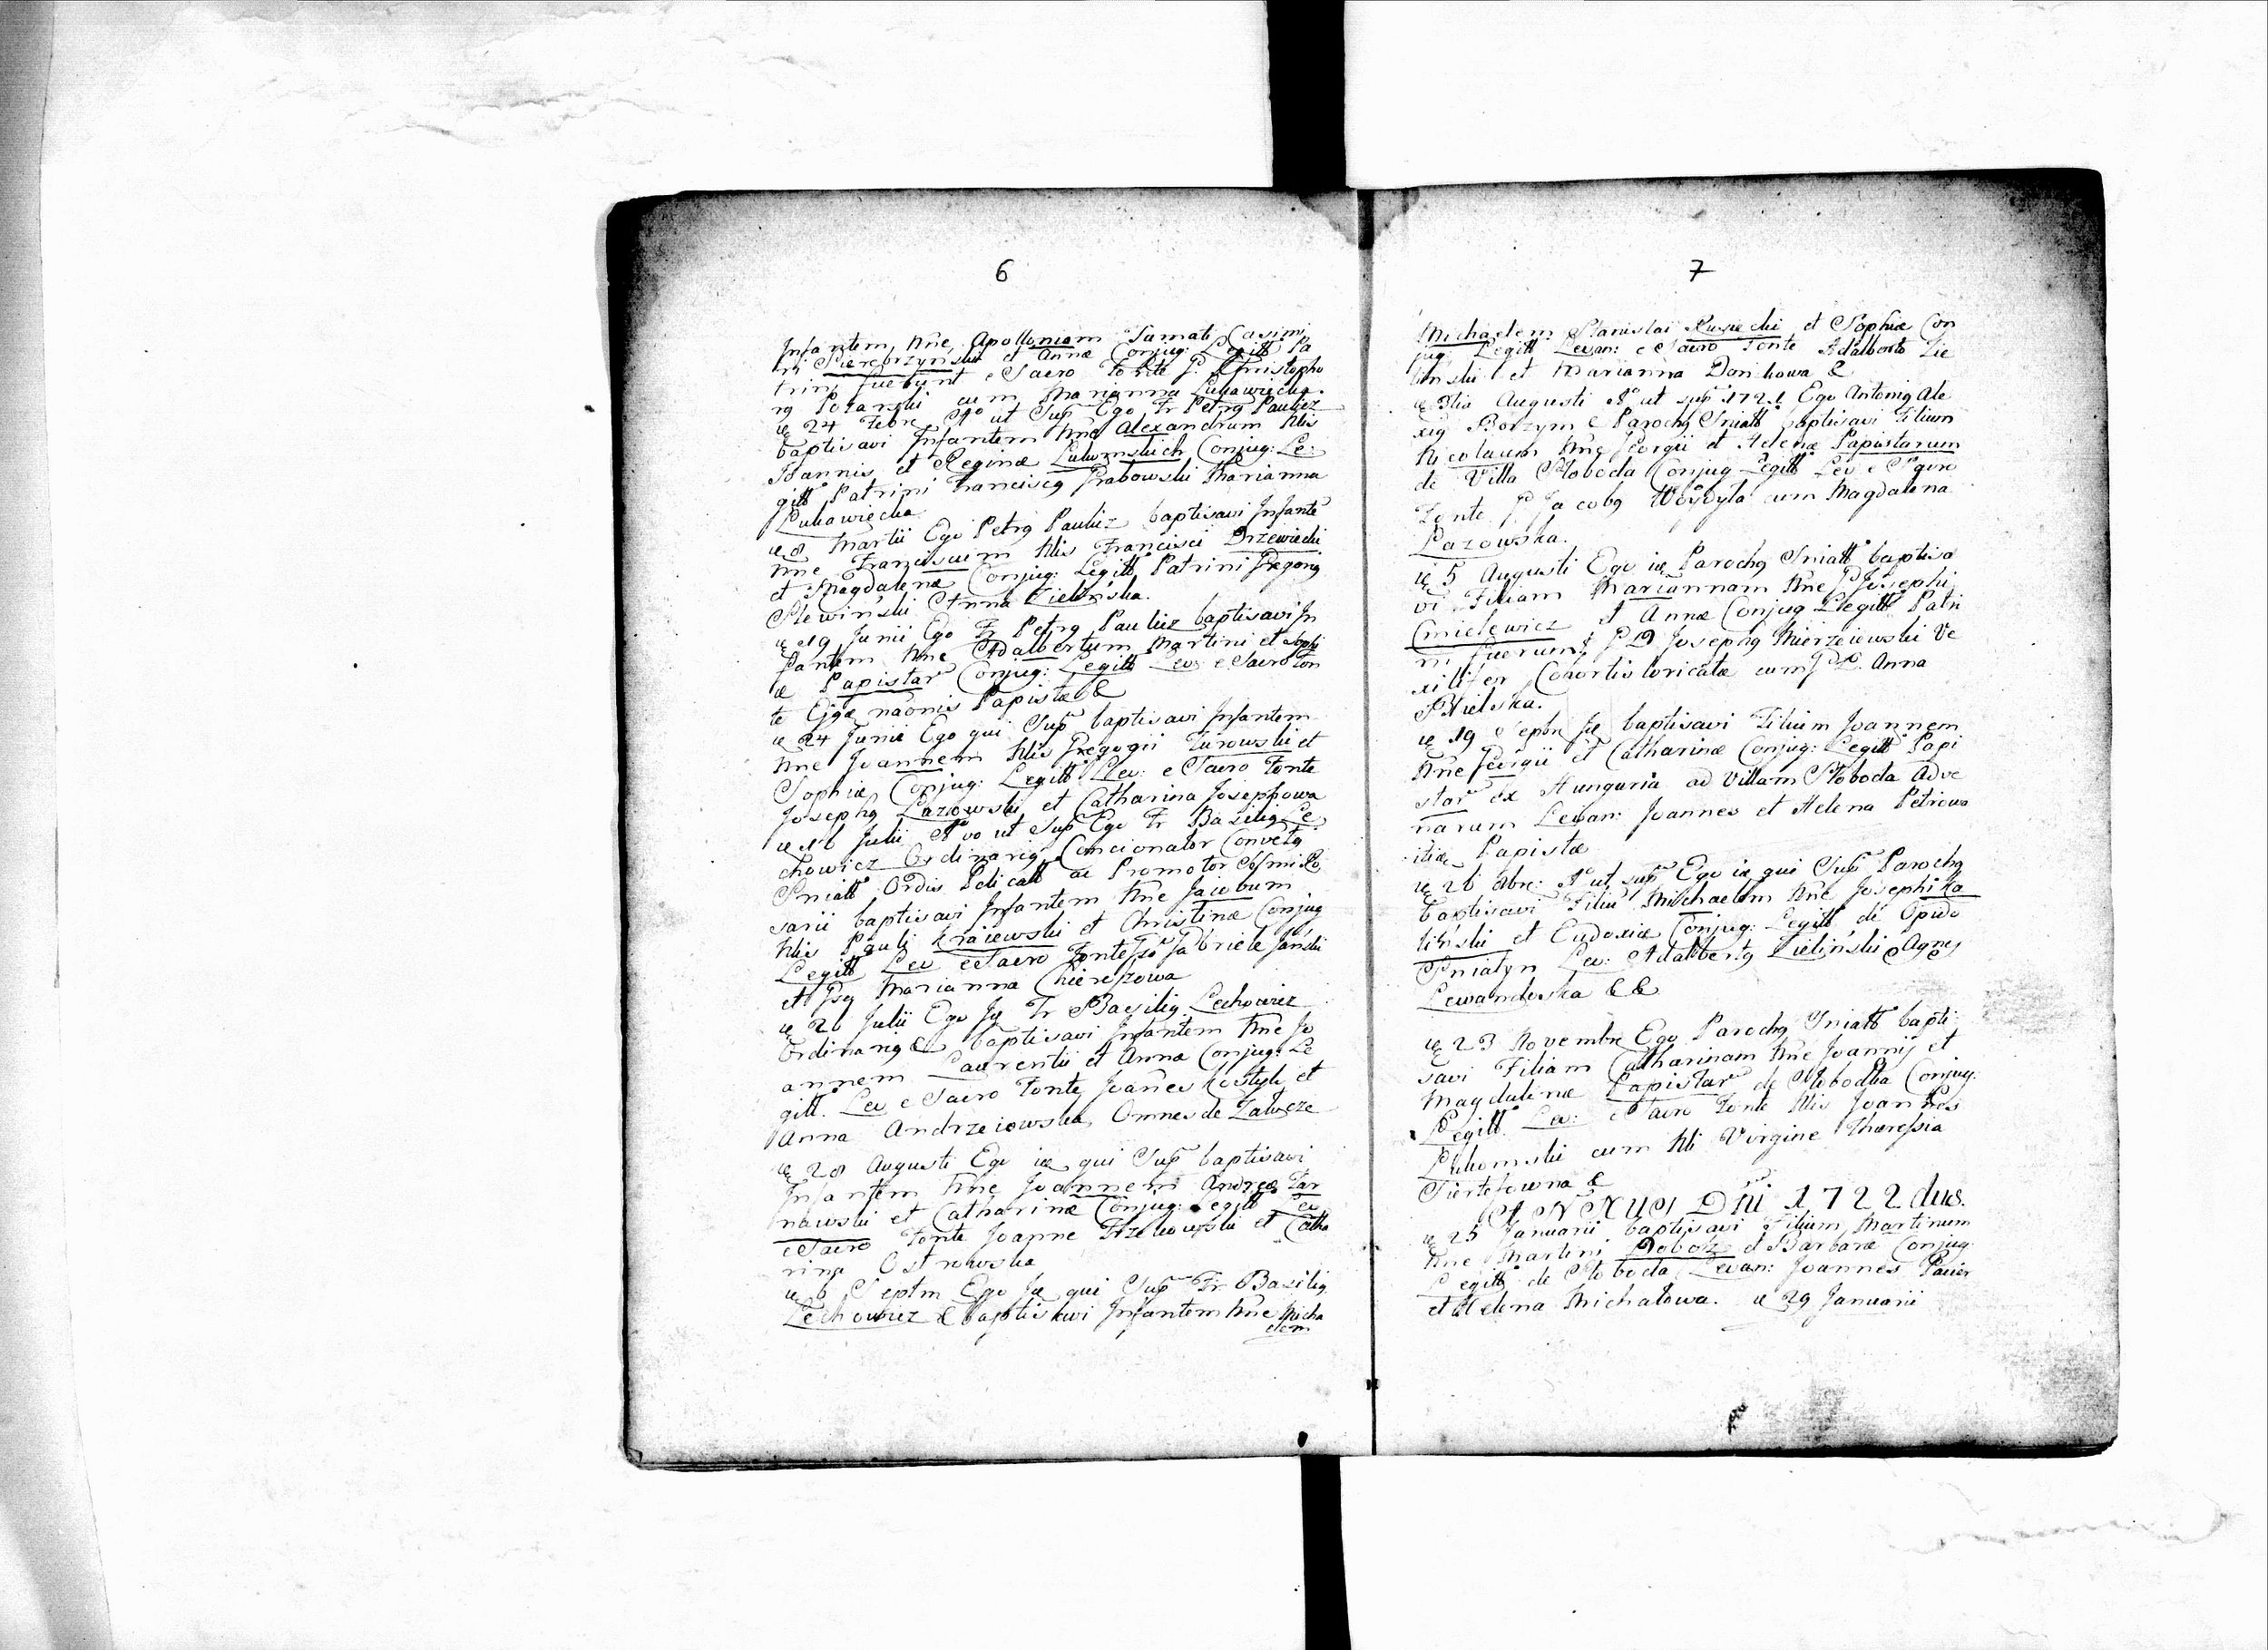 6
Infantem Nne Apolloniam Famati Casimi
ri Pierorzynski et Annæ Conjug: Legitt Pa
trini fuerunt e Sacro Fonte P. Christopho
rg Potarski cum Marianna Lukawiecka.
24 Febr Ao ut Sup Ego Fr Petrg Paulicz
baptisavi Infantem Nne Alexandrum Nlis
Joannis et Reginæ Lukomskich Conjug: Le:
gitt Patrini Franciscg Grabowski Marianna
Lukawiecka
8 Martii Ego Petrg Paulicz baptisavi Infante
Nne Franciscum Nlis Francisci Drzewiecki
et Magdalenæ Conjug: Legitt Patrini Gregorig
Slewinski Anna Zielinska.
19 Junii Ego Fr Petrg Paulicz baptisavi In
fantem Nne Adalbertum Martini et Sophi
æ Papistar Conjug: Legitt Lev: e Sacro Fon
te Ejgæ naonis Papistæ &
24 Junii Ego qui Sup baptisavi Infantem
Nne Joannem Nlis Gregorii Zurowski et
Sophiæ Conjug: Legitt Lev: e Sacro Fonte
Josephg Lazowski et Catharina Josephowa
16 Julii Ao ut Sup Ego Fr Basilig Le
chowicz Ordinarig Concionator Conveta
Sniatt Ordis Pdicatt ac Promotor SSmi Ro
sarii baptisavi Infantem Nne Jacobum
Nlis Pauli Kraiewski et Christinæ Conjug
Legitt Lev e Sacro Fonte Gabriele Janski
et Marianna
26 Julii Ego Fr Basilig Lechowicz
Ordinarig & baptisavi Infantem Nne Jo
annem Laurentii et Annæ Conjug: Le
gitt. Lev e Sacro Fonte Joanes Kostyk et
Anna Andrzeiowska Omnes de Zalucze
28 Augusti Ego qui Sup baptisavi
Infantem Nne Joannem Andreæ Tar
nawski et Catharinæ Conjug: Legitt Lev
e Sacro Fonte Joanne et Catha
rina Ostrowska
6 Septm Ego qui Sup Fr Basilig
Lechowicz & baptisavi Infantem Nne Micha
elem
7
Michaelem Stanislai Rusiecki et Sophiæ Con
jug Legitt Levan: e Sacro Fonte Adalberto Zie
linski et Marianna Donikowa &
3tia Augusti Ao ut sup 1721 Ego Antonig Ale
xig Borzym & Parochg Sniatt baptisavi Filium
Nicolaum Nne Georgii et Helenæ Papistarum
de Villa Sloboda Conjug Legitt Lev e Sacro
Fonte Jacobg Woydyla cum Magdalena
Lazowska.
5 Augusti Ego Parochg Sniatt baptisa
vi Filiam Mariannam Nne Josephi
Cmielewicz et Annæ Conjug Legitt Patri
ni fuerunt Josephg Mierzeiewski Ve
xilifer Cohortis loricatæ cum Anna
Bielska.
19 Sepbr baptisavi Filium Joannem
Nne Georgii et Catharinæ Conjug: Legitt Papi
star ex Hungaria ad Villam Sloboda Adve
narum Levan: Joannes et Helena Petrowa
Papistæ
26 Ao ut sup Ego qui Sup Parochg
baptisavi Filiu Michaelem Nne Josephi Ka
linski et Eudoxiæ Conjug: Legitt de Opido
Sniatyn Lev: Adalbertg Zielinski Agnes
Lewandoska &&
23 Novembr Ego Parochg Sniatt bapti
savi Filiam Catharinam Nne Joannis et
Magdalenæ Papistar de Slobodka Conjug:
Legitt. Lev: e Sacro Fonte Nlis Joannes
Lukomski cum Nli Virgine Theressia
&
ANNUS Dni 1722 dus.
25 Januarii baptisavi Filium Martinum
Nne Martini Dobosz et Barbaræ Conjug
Legitt de Sloboda Levan: Joannes
et Helena Michalowa. 29 Januarii